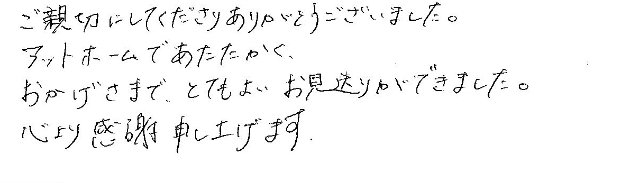 ご親切にしてくださりありがとうございました。
アットホームであたたかく、
おかげさまで、とてもよいお見送りができました。
心より感謝申し上げます。